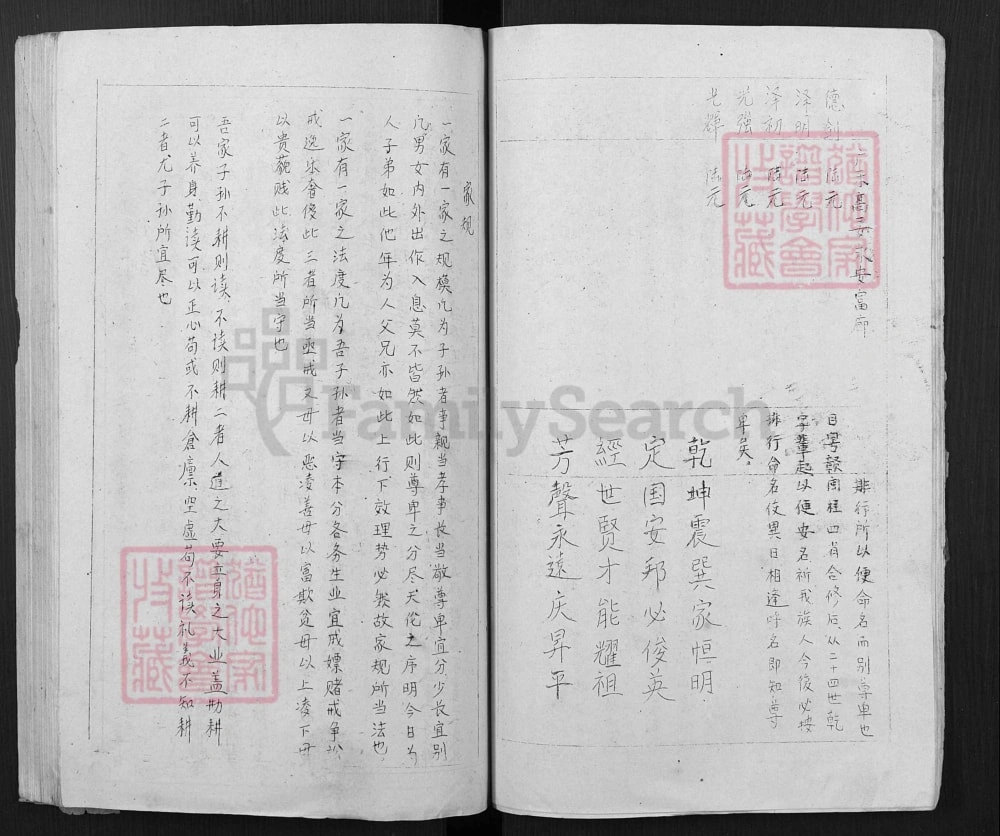 德劍 陆元
泽明 陆元
泽初 陆元
光强 陆元
光輝 陆元
排行所以便命名而别尊卑也
自粤赣闽桂四省合修后从二十四世乾
字輩起以便安名祈我族人今後必按
排行命名伎異日相逢呼名即知尊
卑矣。
乾坤震巽家恒明
定国安邦必俊英
經世賢才能耀祖
芳聲永遠庆昇平
家规
一家有一家之规模凡为子孙者事親当孝事长当敬尊卑宜分少长宜别
凡男女内外出作入息莫不皆然如此则尊卑之分尽天伦之序明今日为
人子弟如此他年为人父兄亦如此上行下效理势必然故家规所当法也
一家有一家之法度凡为吾子孙者当守本分各务生业宜戒嫖赌戒争讼
戒逸乐奢侈此三者所当亟戒又毋以恶凌善毋以富欺贫毋以上凌下毋
以贵藐贱此法度所当守也
吾家子孙不耕则读不读则耕二者人道之大要立身之大业盖力耕
可以养身勤读可以正心苟或不耕倉廪空虚苟不读礼義不知耕
二者尤子孙所宜尽也
FamilySearch